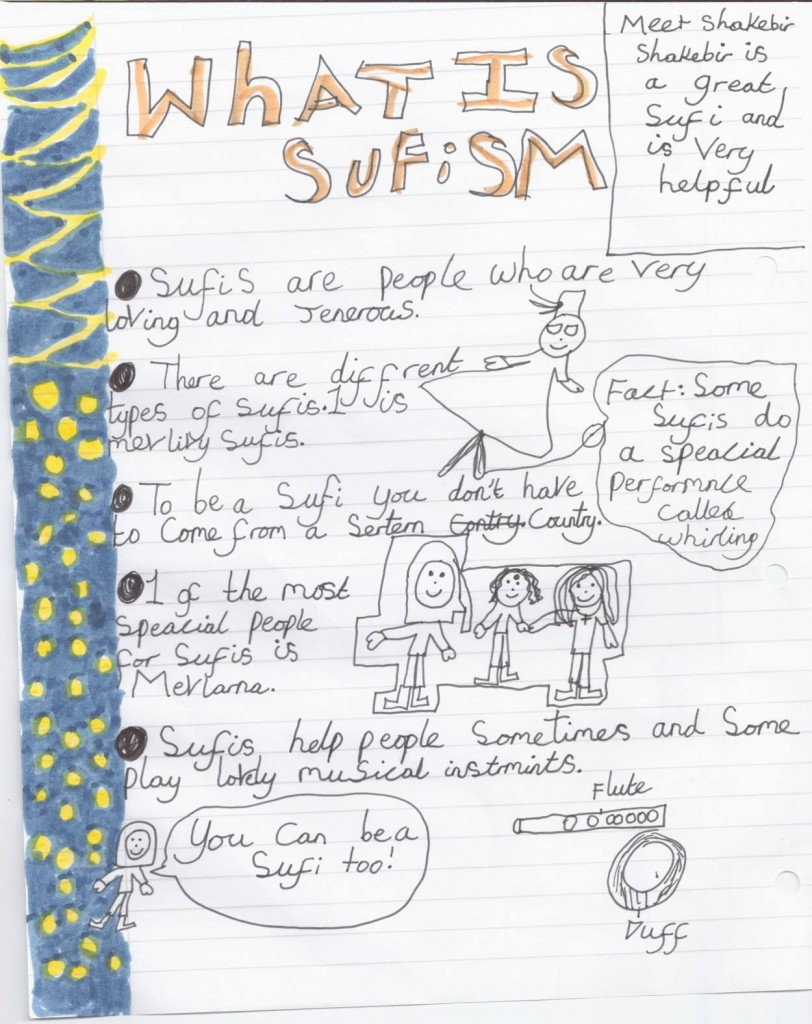 WhAT IS
SUFiSM
Meet Shakebir
Shakebir is
a great
Sufi and
is Very
helpful
Sufis are people who are very
loving and Jenerous.
There are diffrent
types of Sufis. 1 is
mevlivy Sufis.
Fact: Some
Sufis do
a speacial
Performnce
called
whirling
To be a Sufi you don't have
to Come from a Sertern Contry. Country.
1 of the most
speacial people
for Sufis is
Mevlarna.
Sufis help people Sometimes and Some
play lovely musical instmints.
Flute
You Can be a
Sufi too!
Duff